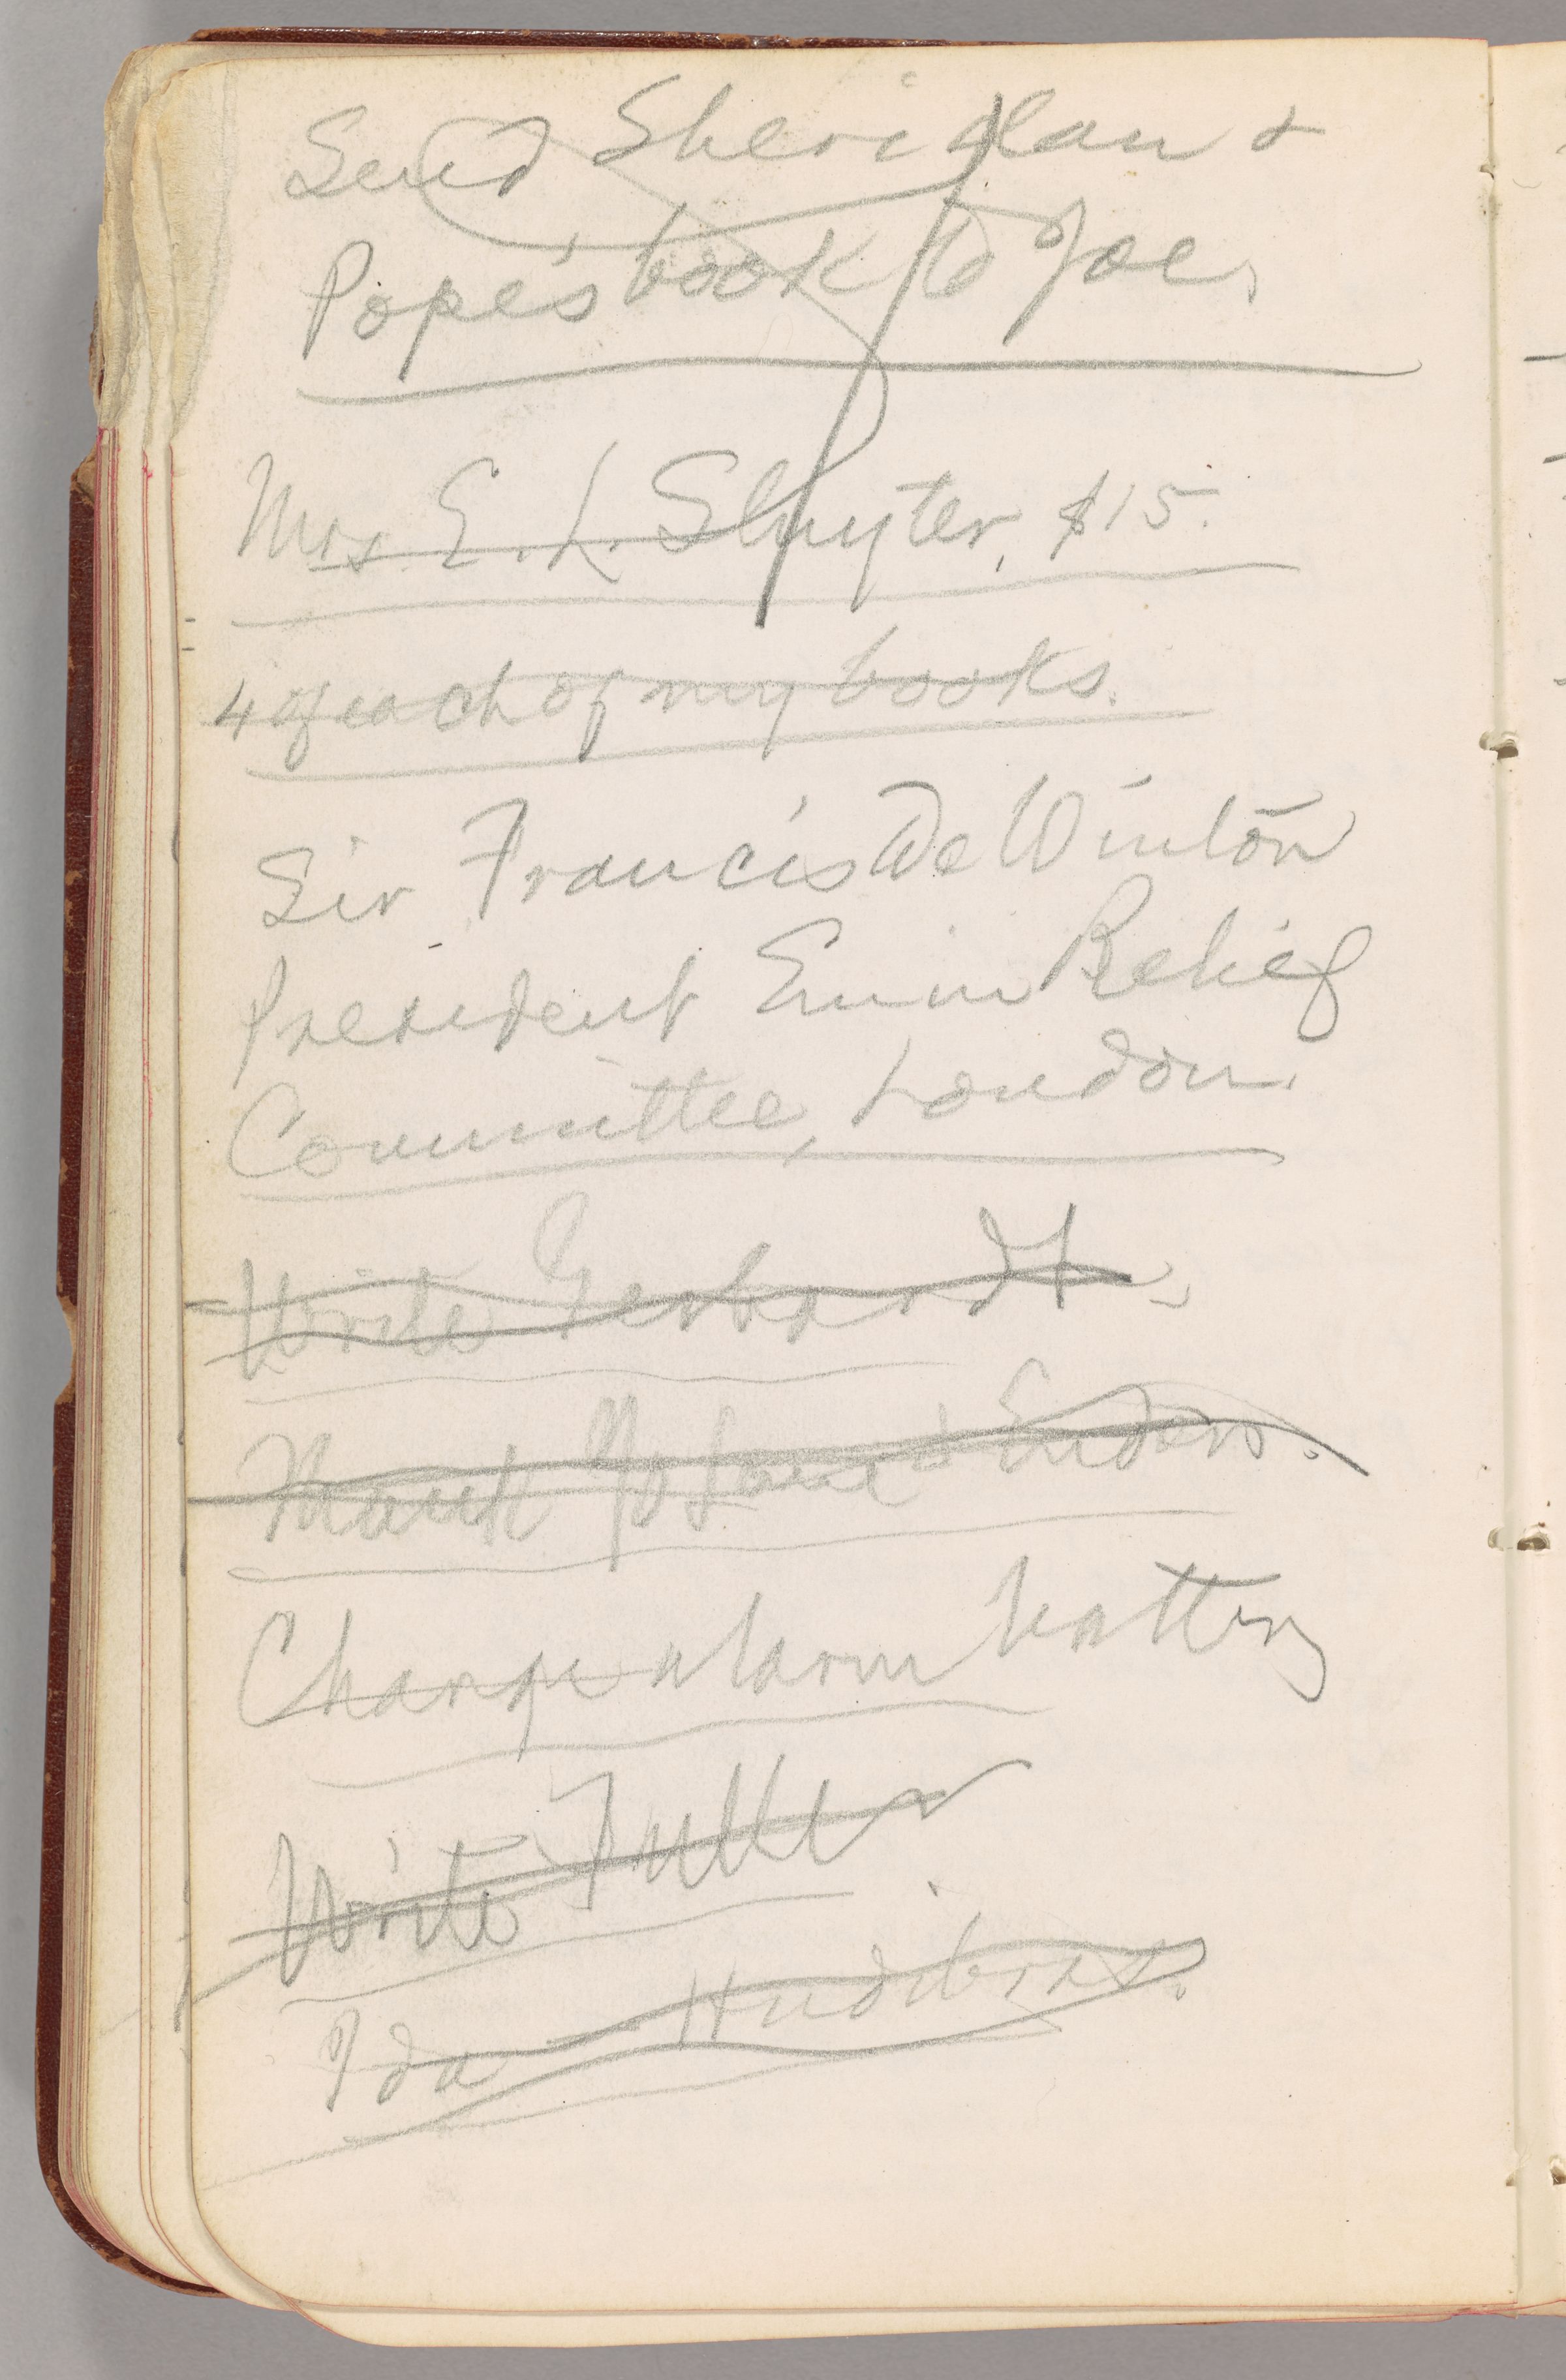 Send Sheridan &
Pope's book to Joe.
Mrs. E. L. Sluyter, $15.
4 of each of my books.
Sir Francis De Winton
President Emin Relief
Committee, London.
Write Gerhardt.
Change alarm battery
Write Fuller
Ida — Hudibras.